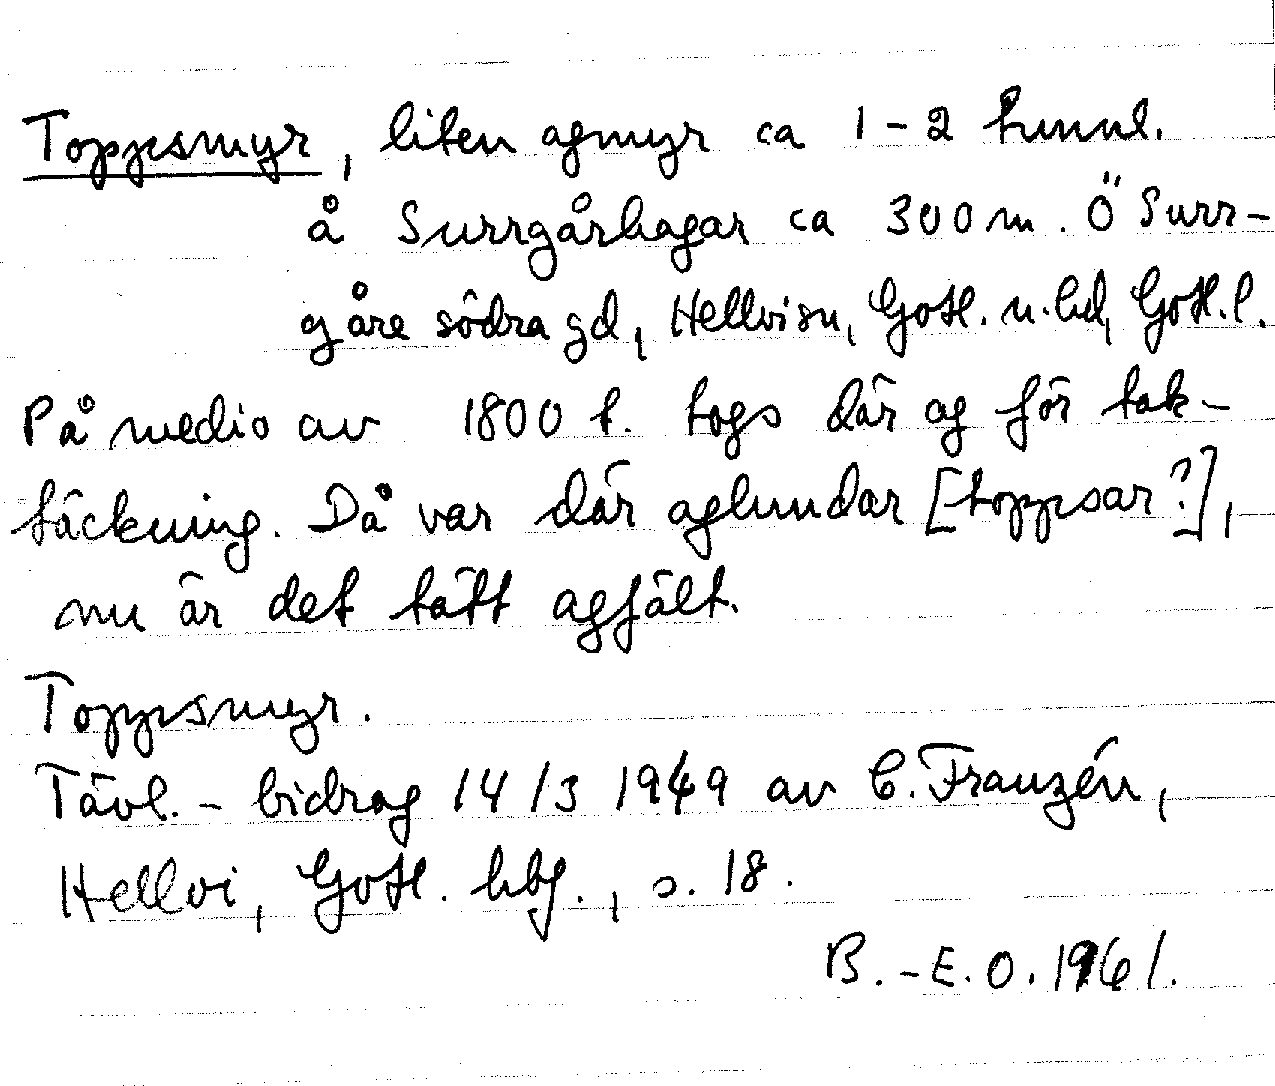 Toppsmyr, liten agmyr ca 1-2 tunnl.
å Surrgårhagar ca 300 m. Ö Surr-
gåre södra gd, Hellvi sn, Gotl. n. hd, Gotl. l.
På medio av 1800 t. togs där ag för tak-
täckning. Då var där aglundar [toppsar?],
nu är det tätt agfält.
Toppsmyr.
Tävl.- bidrag 14/3 1949 av C. Franzén,
Hellvi, Gotl. hbf., s. 18.
B.-E.O. 1961.